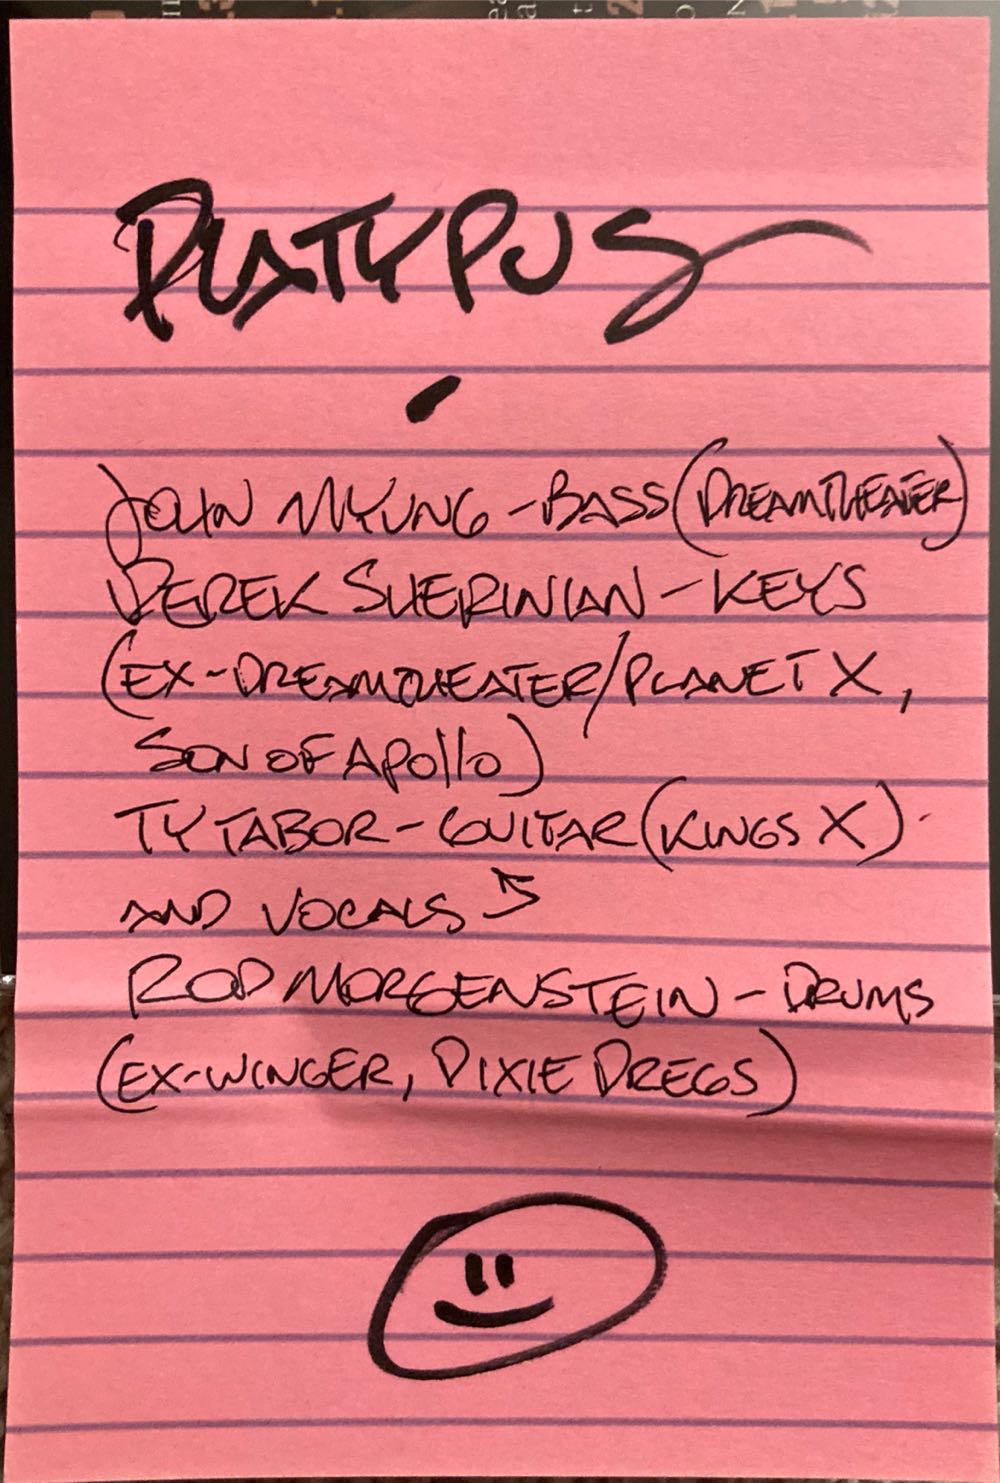 PLATYPUS
JOHN MYUNG - BASS (DREAMTHEATER)
DEREK SHERINIAN - KEYS
(EX-DREAMTHEATER/PLANET X,
SON OF APOLLO)
TY TABOR - GUITAR (KINGS X)
AND VOCALS
ROD MORGENSTEIN - DRUMS
(EX-WINGER, DIXIE DREGS)